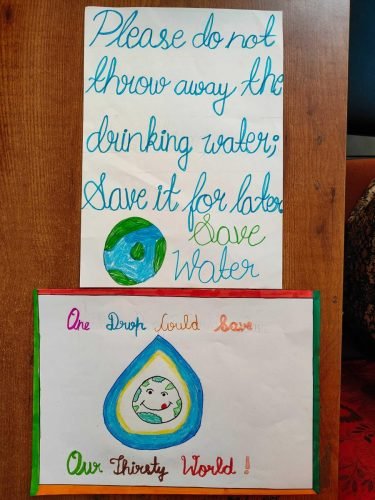 Please do not
throw away the
drinking water;
Save it for later
Save
Water
One Drop Could Save
Our Thirsty World!